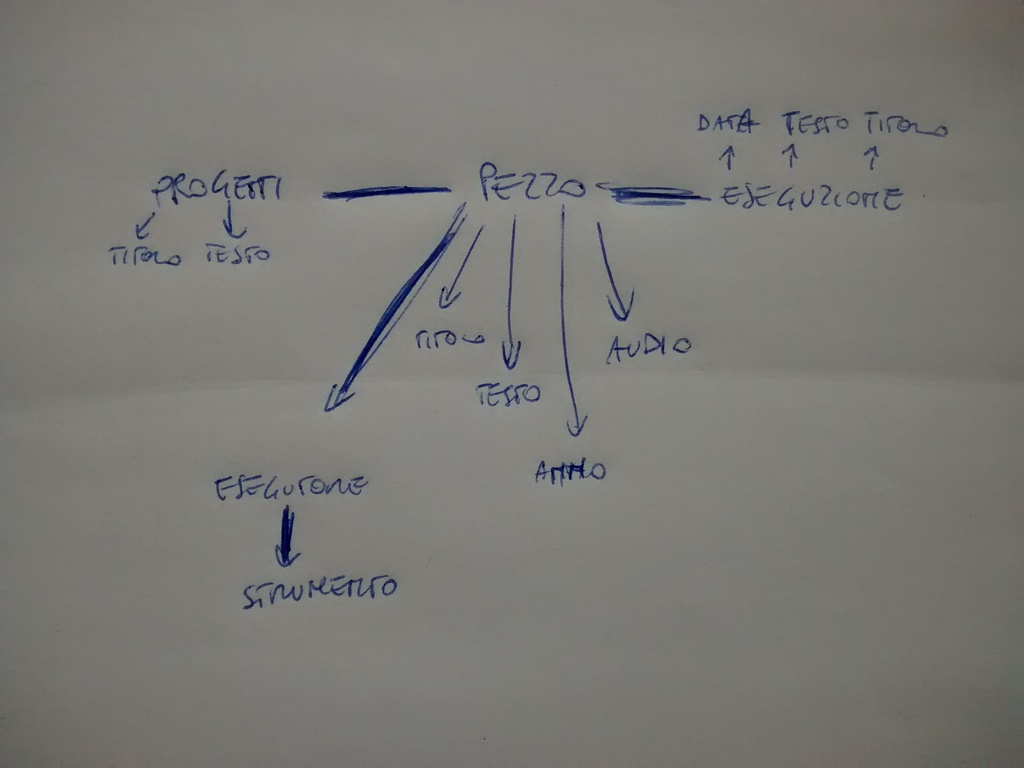 DATA TESTO TITOLO
PROGETTI PEZZO ESEGUZIONE
TITOLO TESTO
TITOLO AUDIO
TESTO
ANNO
ESEGUTORE
STRUMENTO